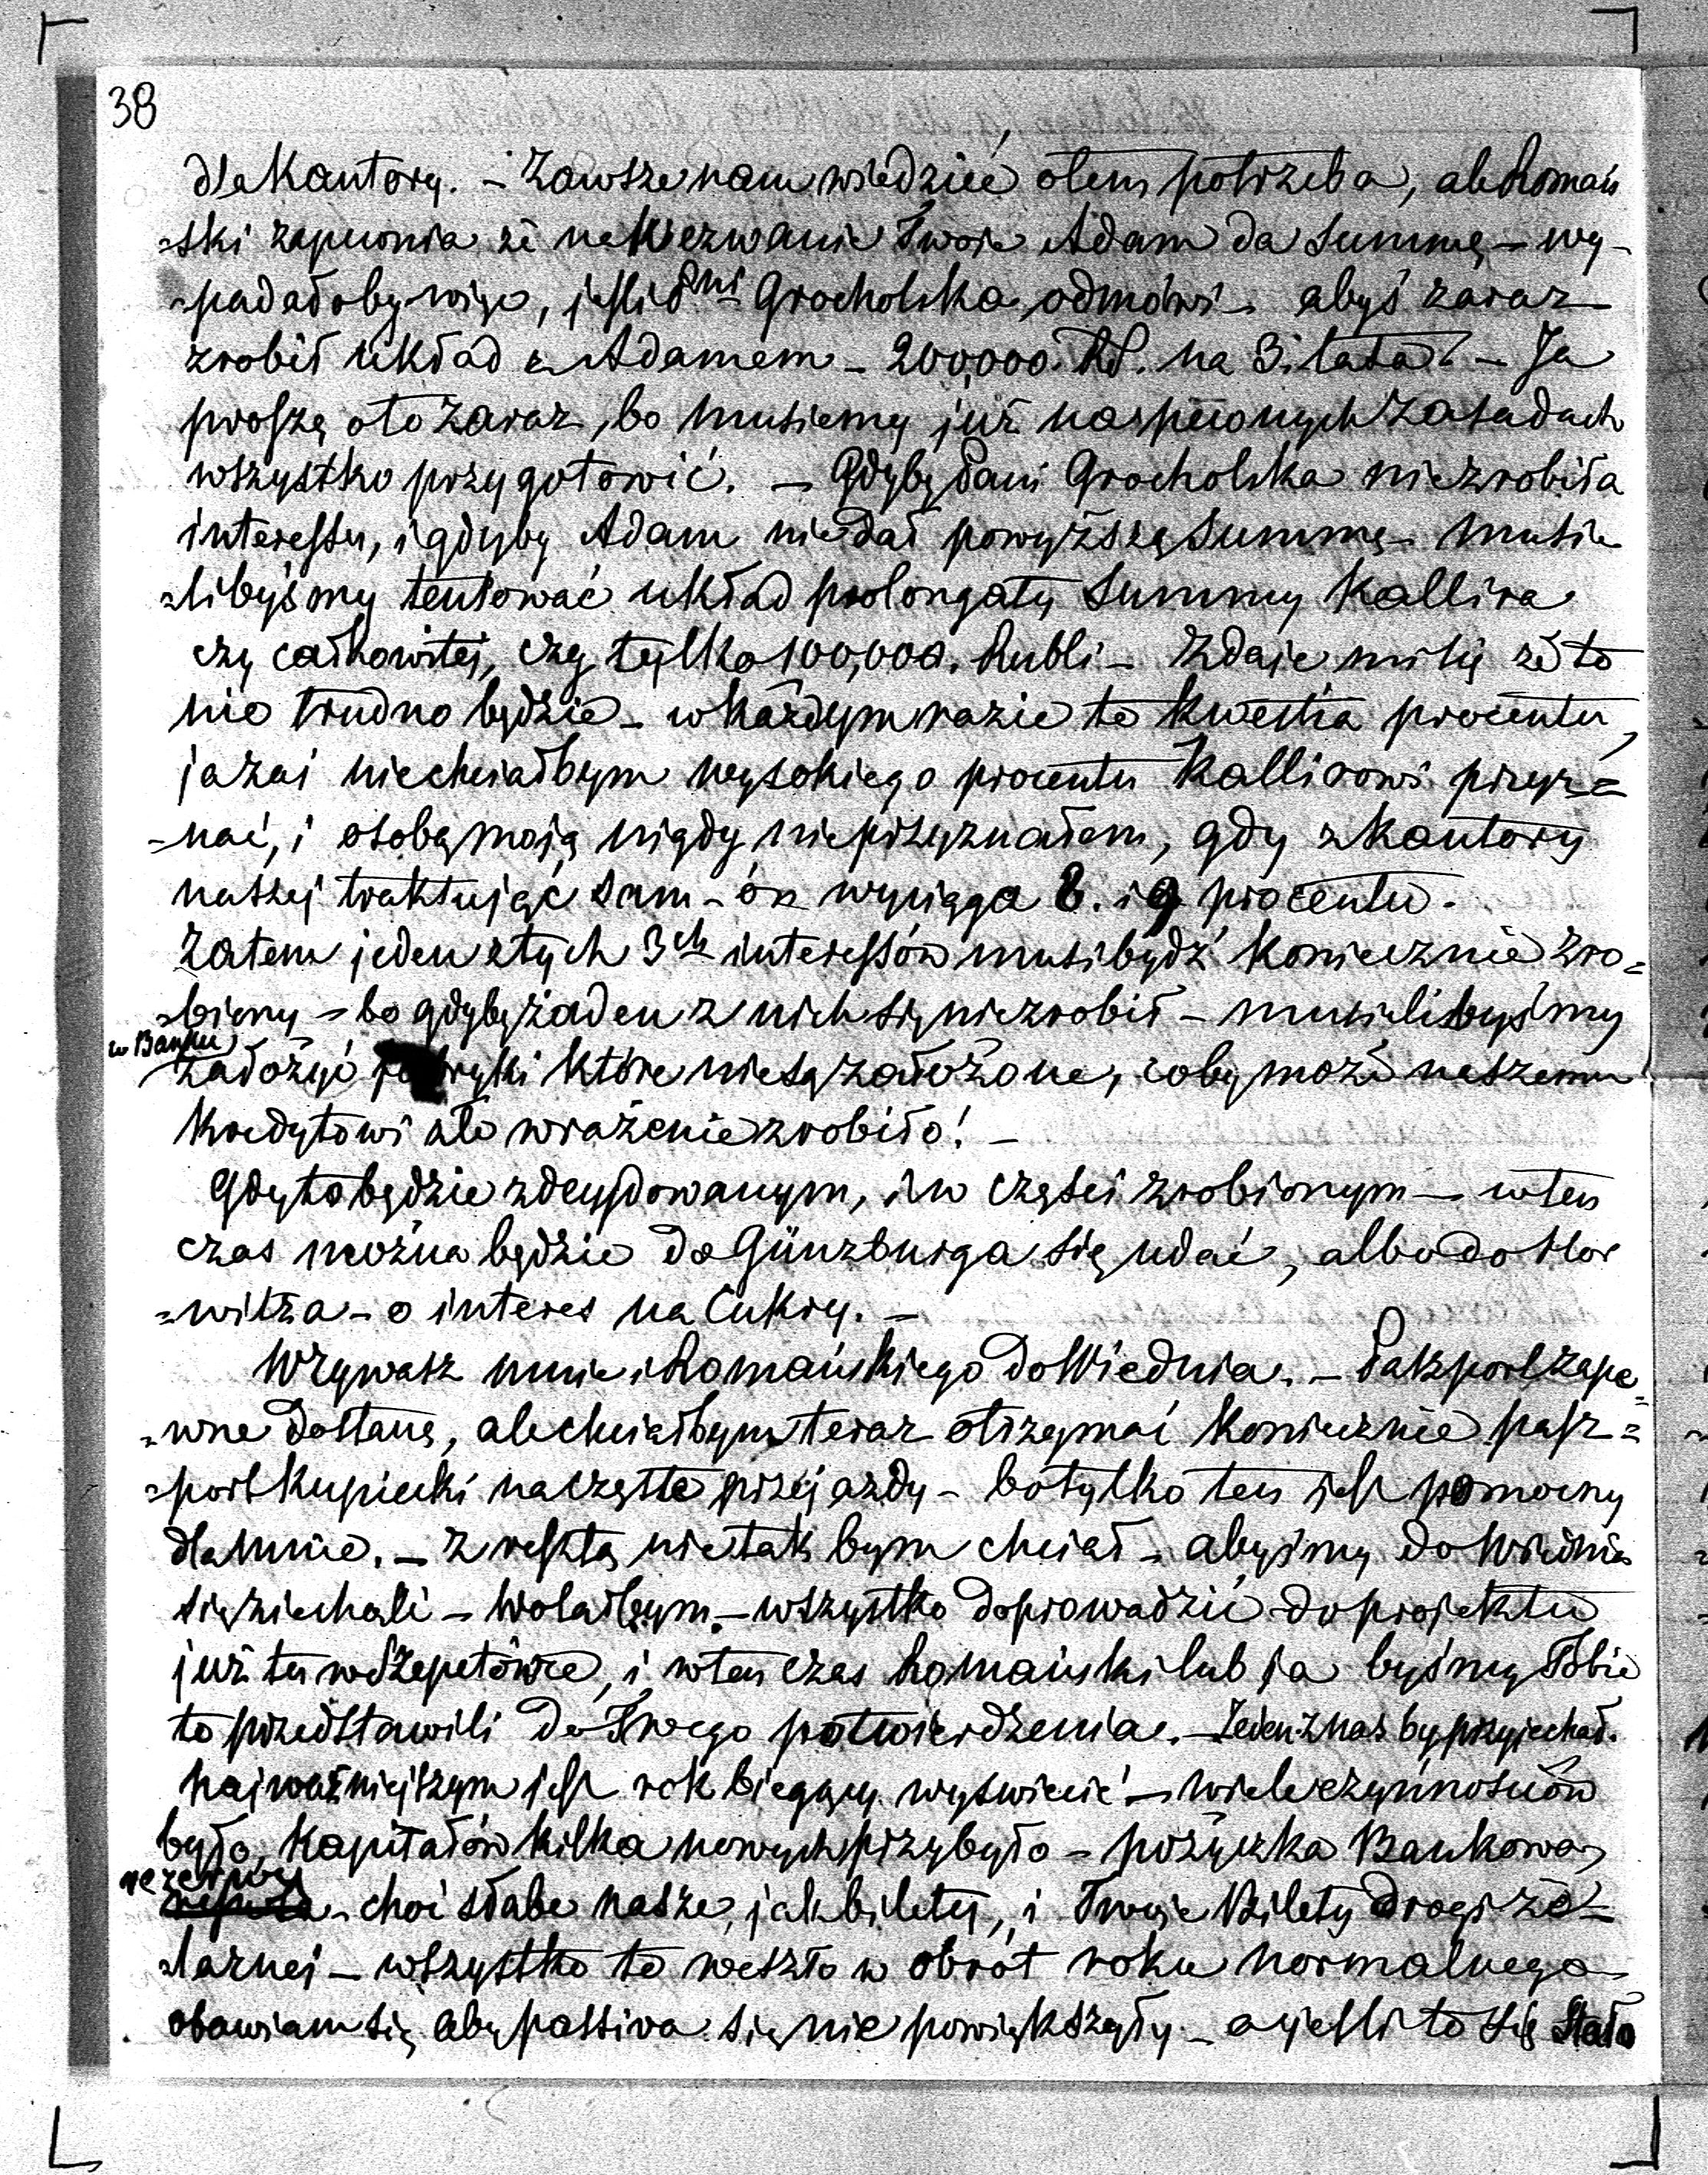 38
dla Kantory. - Zawsze nam wiedzieć otem potrzeba, ale Romań
-ski zapewnia że na Wezwanie Twoje Adam da Summę - wy-
-padałoby więc, jeśli Pni Grocholska odmówi - abyś zaraz
zrobił układ z Adamem - 200,000. RS. na 3. lata? - Ja
proszę oto zaraz, bo musiemy już na pewnych zasadach
wszystko przygotowić. - Gdyby Pani Grocholska niezrobiła
interessu, i gdyby Adam niedał powyższą Summę - musie
-libyśmy tentować układ prolongaty Summy Kallira
czy całkowitej, czy tylko 100,000. Rubli - Zdaje misię że to
nie trudno będzie - w każdym razie to kwestia procentu,
ja zaś niechciałbym wysokiego procentu Kallirowi przyz=
-nać, i osobą moją nigdy nieprzyznałem, gdy z Kantory
naszej traktując sam - on wyciąga 8. i 9 procentu.
Zatem jeden ztych 3ch interessów musi bydź koniecznie zro=
-biony - bo gdyby żaden z nich się niezrobił - musielibyśmy
w Banku
założyć fabryki które niesą założone, coby może naszemu
Kredytowi złe wrażenie zrobiło! -
Gdy to będzie zdecydowanym, i w części zrobionym - wten
czas można będzie do Günzburga się udać, albo do Hor
=witza - o interes na Cukry. -
Wzywasz mnie i Romańskiego do Wiednia. - Paszport zape=
-wne dostanę, ale chciałbym teraz otrzymać koniecznie pasz=
-port kupiecki na częste przejazdy - bo tylko ten jest pomocny
dla mnie. - Z resztą nie tak bym chciał - abyśmy do Wiednia
się ziechali - wolałbym - wszystko doprowadzić do projektu
już tu w Szepetówce, i wten czas Romański lub ja byśmy Tobie
to przedstawili do Twego potwierdzenia. - Jeden z nas by przyjechał.
Najważniejszym jest rok bieżący wyświecić - wiele czynnościów
było, Kapitałów kilka nowych przybyło - pożyczka Bankowa,
rezerwy
- choć słabe nasze, jak bilety, i Twoje Bilety Drogi że-
-laznej - wszystko to weszło w obrót roku normalnego -
obawiam się aby passiva się nie powiększyły - a jeśli to się stało